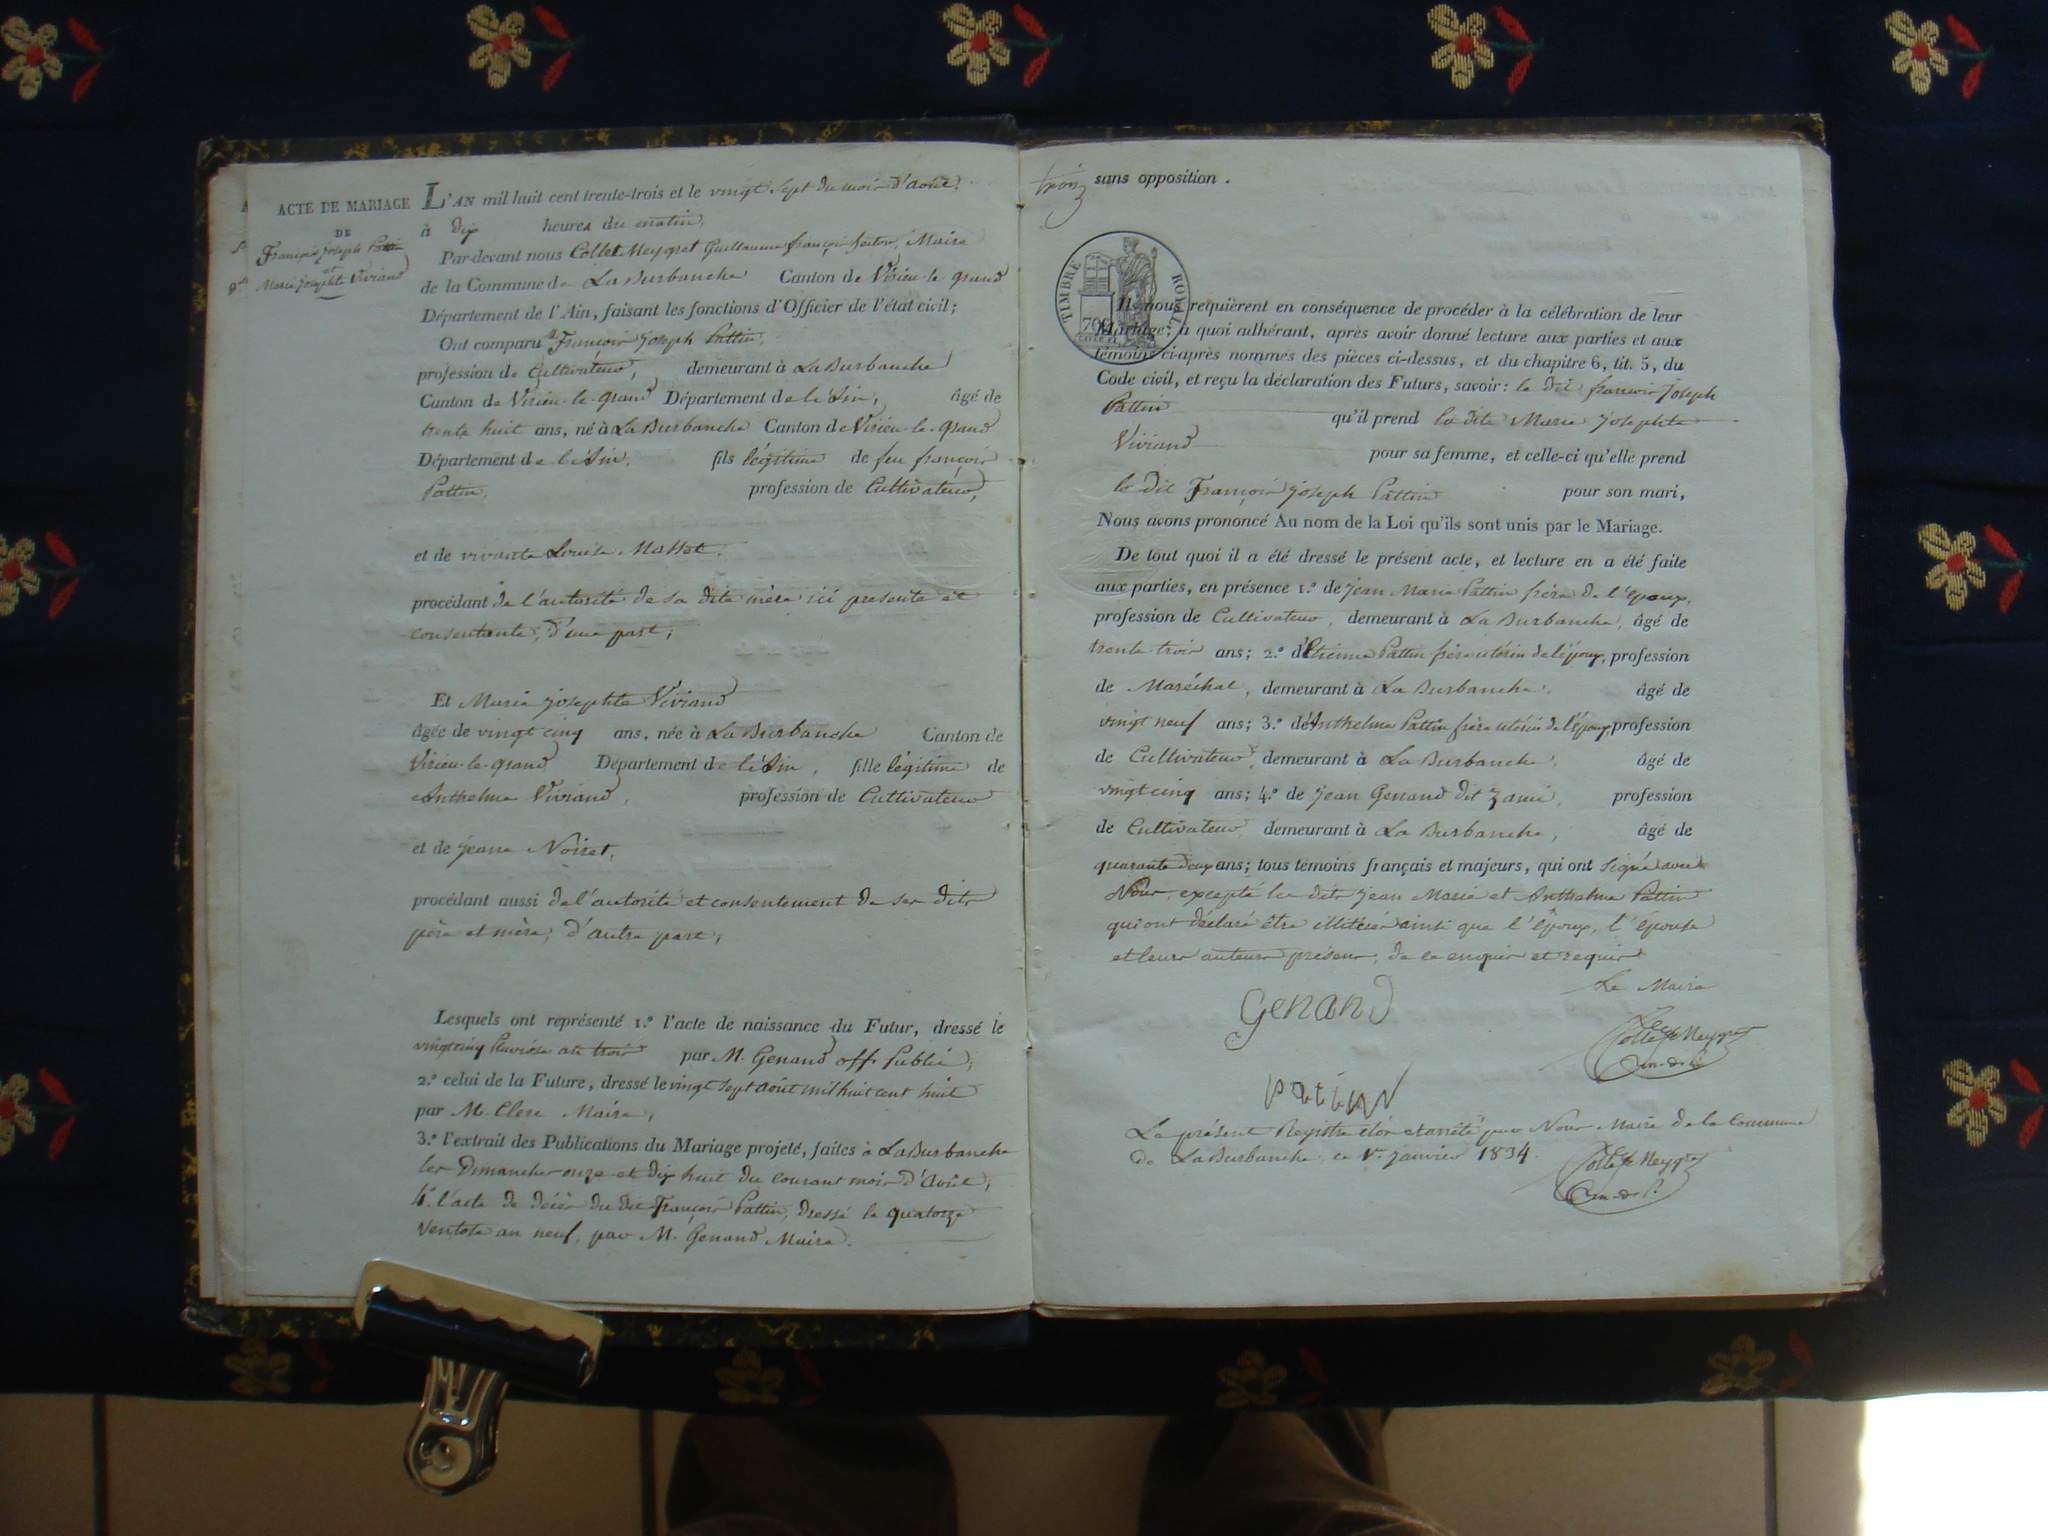 ACTE DE MARIAGE
DE
Sr François Joseph Pattin
et
Dlle Marie Josephte Viviand
L'AN mil huit cent trente-trois et le vingt sept du mois d'août,
à dix heures du matin,
Par-devant nous Collet Meygret Guillaume françois fortuné, Maire
de la Commune de La Burbanche Canton de Virieu-le-grand
Département de l'Ain, faisant les fonctions d'Officier de l'état civil;
Ont comparu Sr François Joseph Pattin,
profession de Cultivateur, demeurant à La Burbanche
Canton de Virieu-le-grand Département de l'Ain, âgé de
trente huit ans, né à La Burbanche Canton de Virieu-le-grand
Département de l'Ain, fils légitime de feu françois
Pattin, profession de Cultivateur,
et de vivante Louise Massot,
procédant de l'autorité de sa dite mère ici presente et
consentante, d'une part;
Et Marie Josephte Viviand
âgée de vingt cinq ans, née à La Burbanche Canton de
Virieu-le-grand Département de l'Ain, fille légitime de
Anthelme Viviand, profession de Cultivateur
et de Jeane Noiret,
procédant aussi de l'autorité et consentement de ses dits
père et mère; d'autre part;
Lesquels ont représenté 1.º l'acte de naissance du Futur, dressé le
vingt cinq Pluviose an trois par M. Genand off. Public,
2.º celui de la Future, dressé le vingt sept août mil huit cent huit
par M. Clerc Maire,
3.º l'extrait des Publications du Mariage projeté, faites à La Burbanche
les Dimanches onze et dix huit du courant mois d'Août,
4º l'acte de décès du dit François Pattin, dressé le quatorze
Ventose an neuf, par M. Genand Maire.
trois
sans opposition.
TIMBRE ROYAL
70C
Ils nous requièrent en conséquence de procéder à la célébration de leur
Mariage; à quoi adhérant, après avoir donné lecture aux parties et aux
témoins ci-après nommés des pièces ci-dessus, et du chapitre 6, tit. 5, du
Code civil, et reçu la déclaration des Futurs, savoir: le dit françois Joseph
Pattin qu'il prend la dite Marie Josephte
Viviand pour sa femme, et celle-ci qu'elle prend
le dit François Joseph Pattin pour son mari,
Nous avons prononcé Au nom de la Loi qu'ils sont unis par le Mariage.
De tout quoi il a été dressé le présent acte, et lecture en a été faite
aux parties, en présence 1.º de Jean Marie Pattin frère de l'époux,
profession de Cultivateur, demeurant à La Burbanche, âgé de
trente trois ans; 2.º d'Etienne Pattin frère utérin de l'époux, profession
de Maréchal, demeurant à La Burbanche, âgé de
vingt neuf ans; 3.º d'Anthelme Pattin frère utérin de l'époux, profession
de Cultivateur, demeurant à La Burbanche, âgé de
vingt cinq ans; 4.º de Jean Genand dit Jami, profession
de Cultivateur demeurant à La Burbanche, âgé de
quarante deux ans; tous témoins français et majeurs, qui ont signé avec
Nous, excepté les dits Jean Marie et Anthelme Pattin
qui ont déclaré être illitérés ainsi que l'époux, l'épouse
et leurs auteurs présens, de ce enquis et requis
Le Maire
Genand
Collet Meygret
patin
Le présent Registre clos et arrêté par Nous Maire de la Commune
de La Burbanche ce 1er Janvier 1834.
Collet Meygret